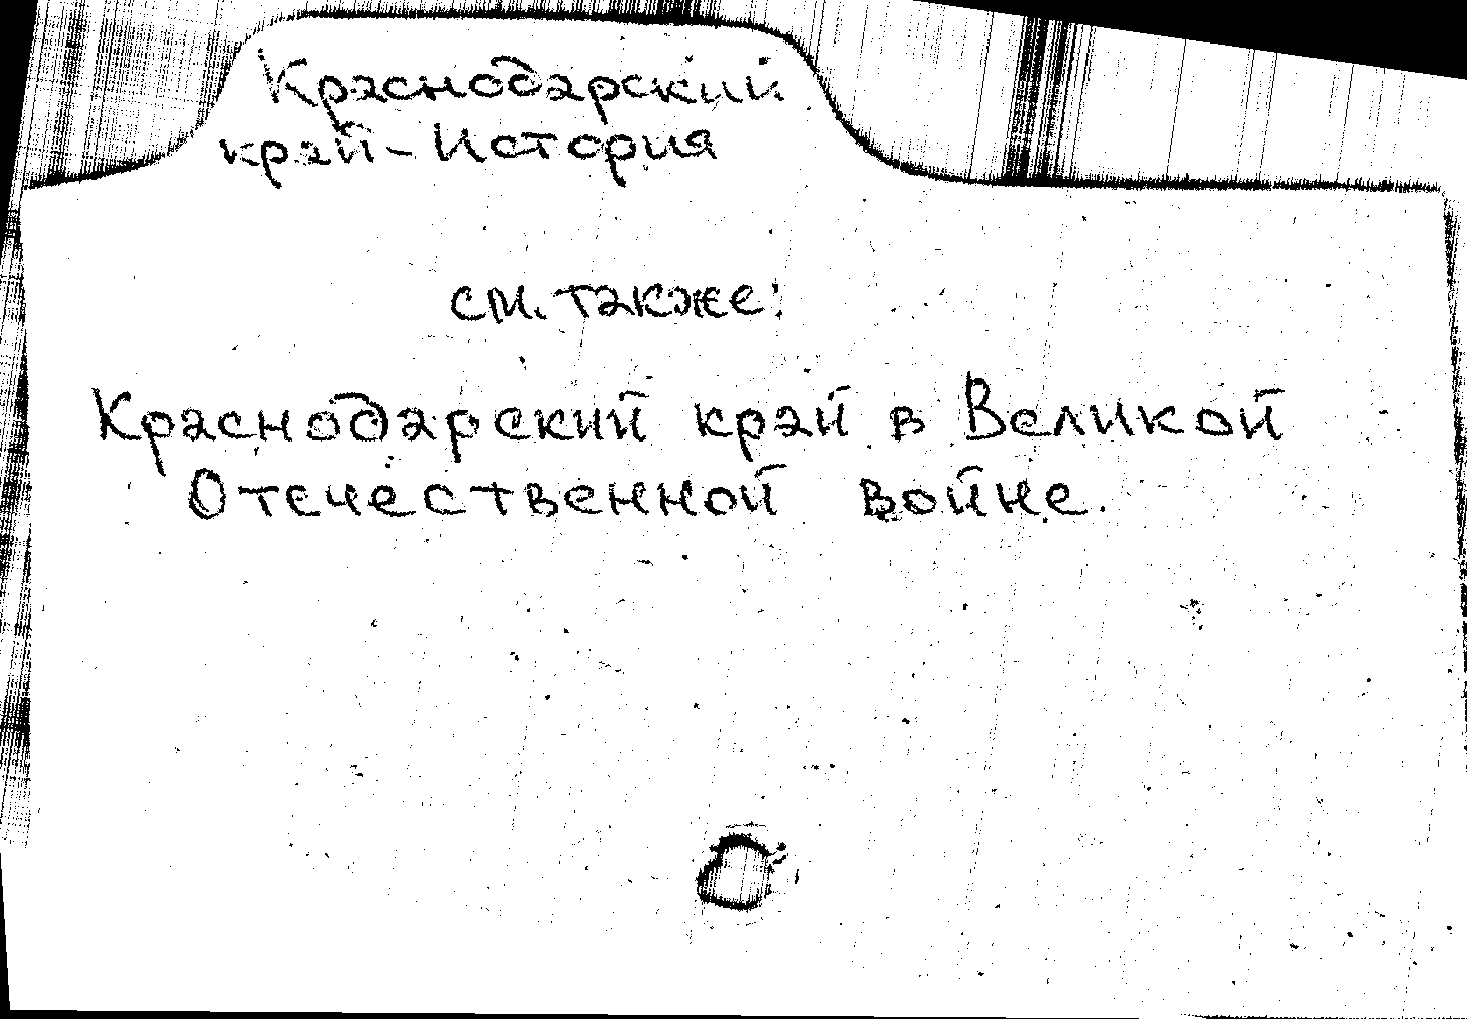 Краснодарский
край - История
см. также:
Краснодарский край в Великой
Отечественной войне.